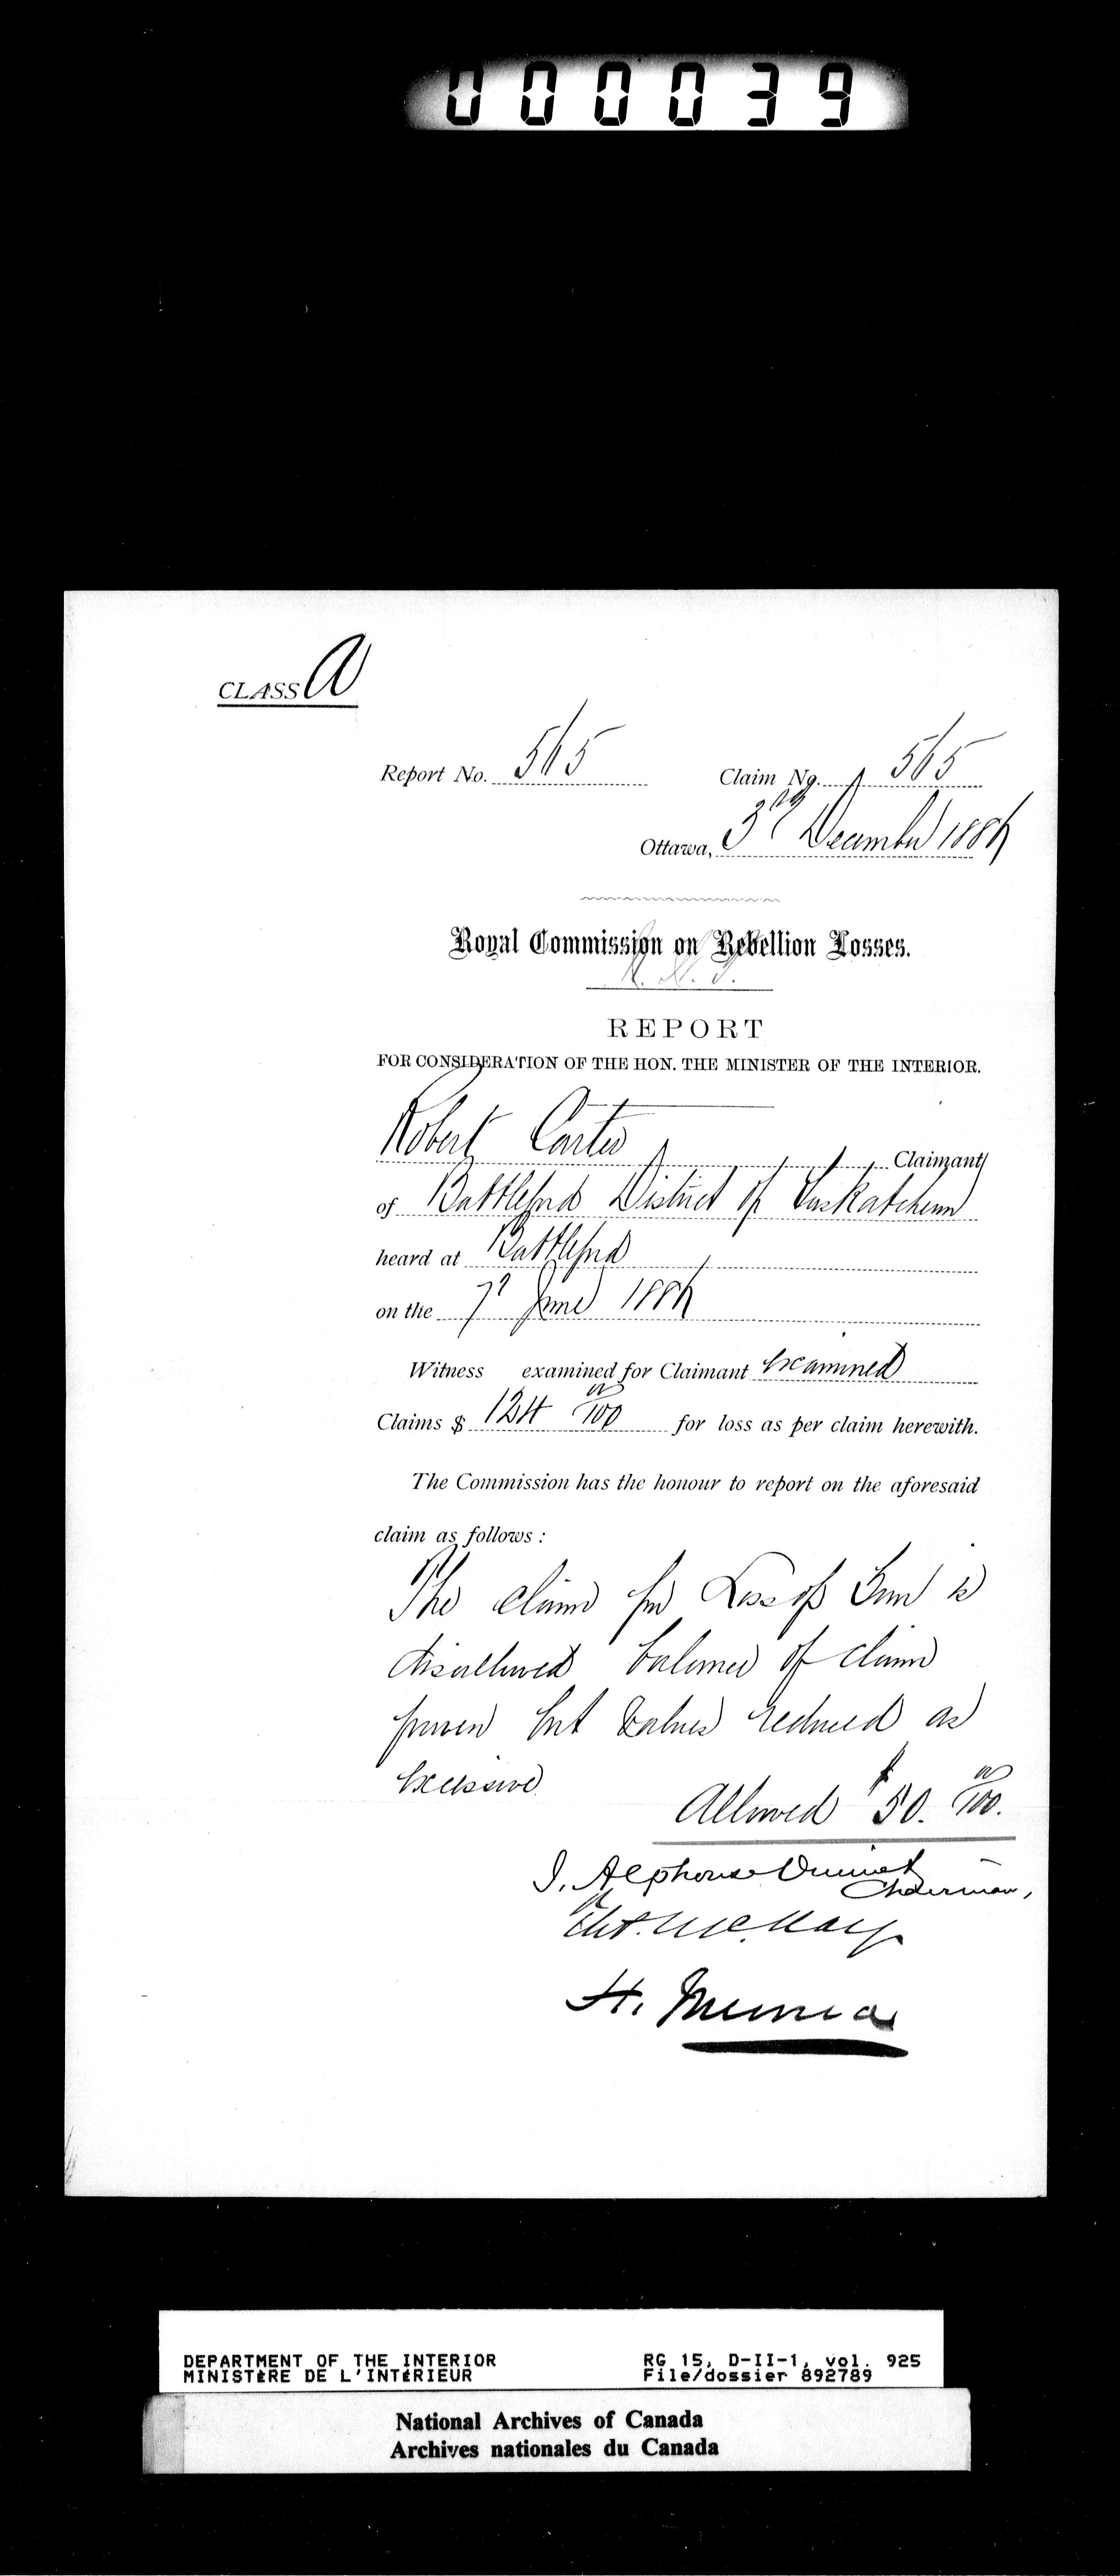 000039
CLASS A
Report No. 565 Claim No. 565
Ottawa, 3rd December 1886
Royal Commission on Rebellion Losses.
REPORT
FOR CONSIDERATION OF THE HON. THE MINISTER OF THE INTERIOR.
Robert Carter Claimant
of Battleford District of Saskatchewan
heard at Battleford
on the 7th June 1886
Witness examined for Claimant Examined
Claims $ 124 00/100 for loss as per claim herewith.
The Commission has the honour to report on the aforesaid
claim as follows:
The claim for Loss of Gun is
disallowed balance of claim
proven but values reduced as
excessive
Allowed $50. 00/100.
J. Alphonse Ouimet
Chairman,
Tho. McKay
H. Muma
DEPARTMENT OF THE INTERIOR RG 15, D-II-1, vol. 925
MINISTÈRE DE L'INTÉRIEUR File/dossier 892789
National Archives of Canada
Archives nationales du Canada